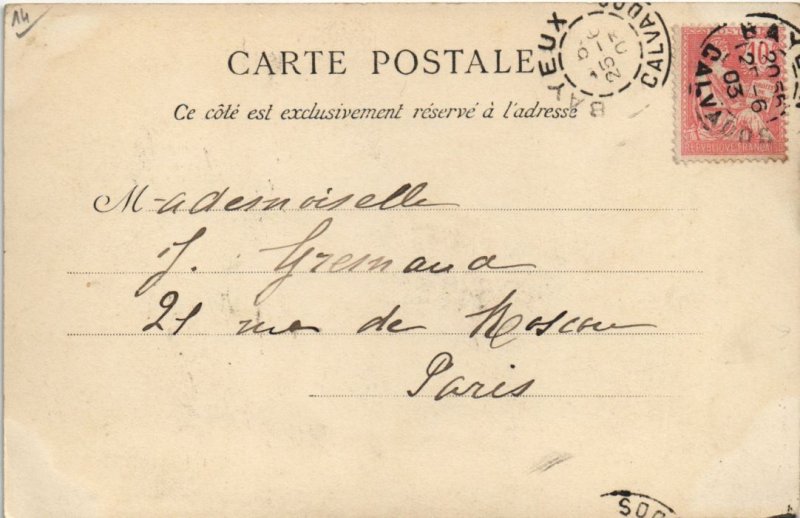 14
CARTE POSTALE
Ce côté est exclusivement réservé à l'adresse
BAYEUX
CALVADOS
BAYEUX
CALVADOS
03
10
REPUBLIQUE FRANÇAISE
Mademoiselle
J. Gremaud
21 rue de Moscou
Paris
DOS